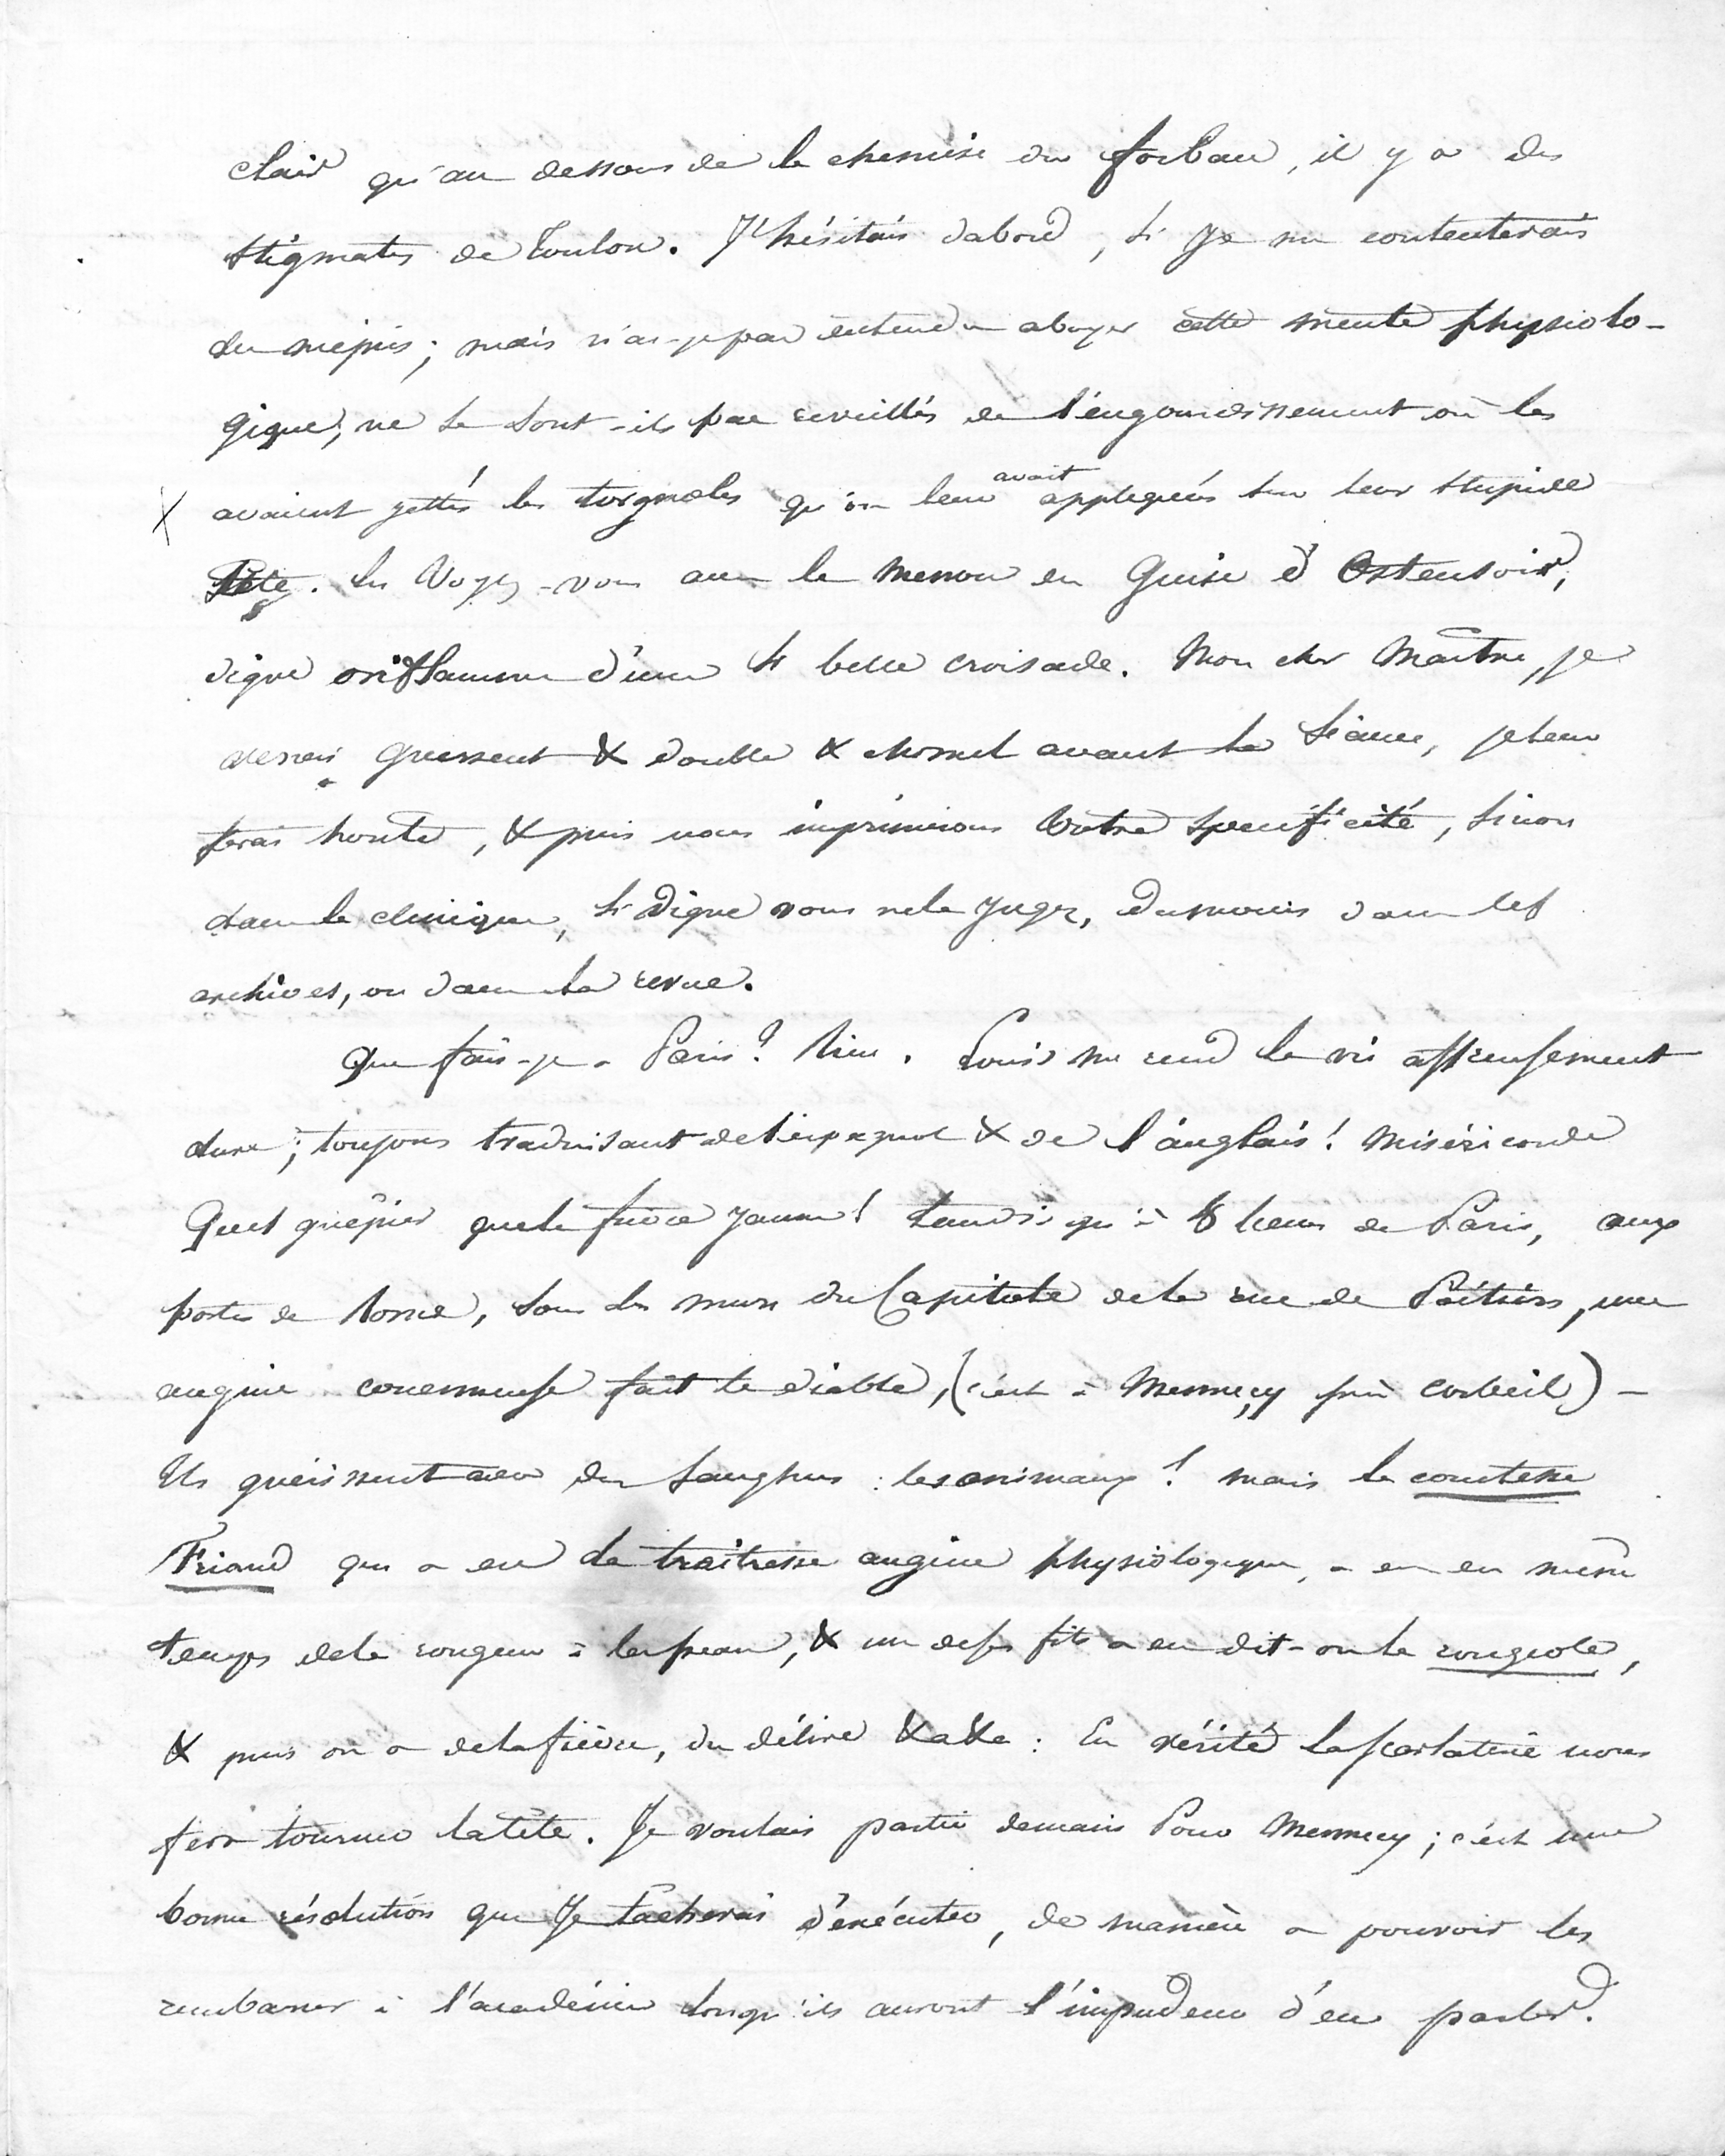 clair qu'au dessous de la chemise du forban, il y a des
stigmates de Toulon. J'hésitais dabord, si je me contenterais
du mépris; mais n'ai-je pas entendu aboyer cette meute physiolo-
gique, ne se sont-ils pas reveillés de l'engourdissement où les
X avaient jettés les torgnoles qu'on leur avait appliquées sur leur stupide
Tête. Les Voyez-vous avec le en Guise d'Ostensoir,
digne oriflamme d'une si belle croisade. Mon cher Maître, je
verrai Guersent & double & chomel avant la séance, je leur
ferai honte, & puis nous imprimerons Votre spécificité, sinon
dans la clinique, si digne vous ne la jugez, du moins dans les
archives, ou dans la revue.
Que fais-je a Paris? Rien. Louis me rend la vie affreusement
dure; toujours traduisant de l'espagnol & de l'anglais! Miséricorde
Quel guêpier que la fièvre jaune! tandis qu'à 8 lieues de Paris, aux
portes de Rome, sous les murs du Capitole de la rue de Poitiers, une
angine couenneuse fait le diable, (c'est à Mennecy près Corbeil) -
Ils guérissent avec des sangsues : les animaux! mais la comtesse
Friand qui a eu la traitresse angine physiologique, a eu en même
temps de la rougeur à la peau, & un de ses fils a eu dit-on la rougeole,
& puis on a de la fièvre, du délire &a &a : En vérité la scarlatine nous
fera tourner la tête. Je voulais partir demain Pour Mennecy; c'est une
bonne résolution que Je tacherai d'exécuter, de manière a pouvoir les
rembarrer à l'académie lorsqu'ils auront l'impudence d'en parler.